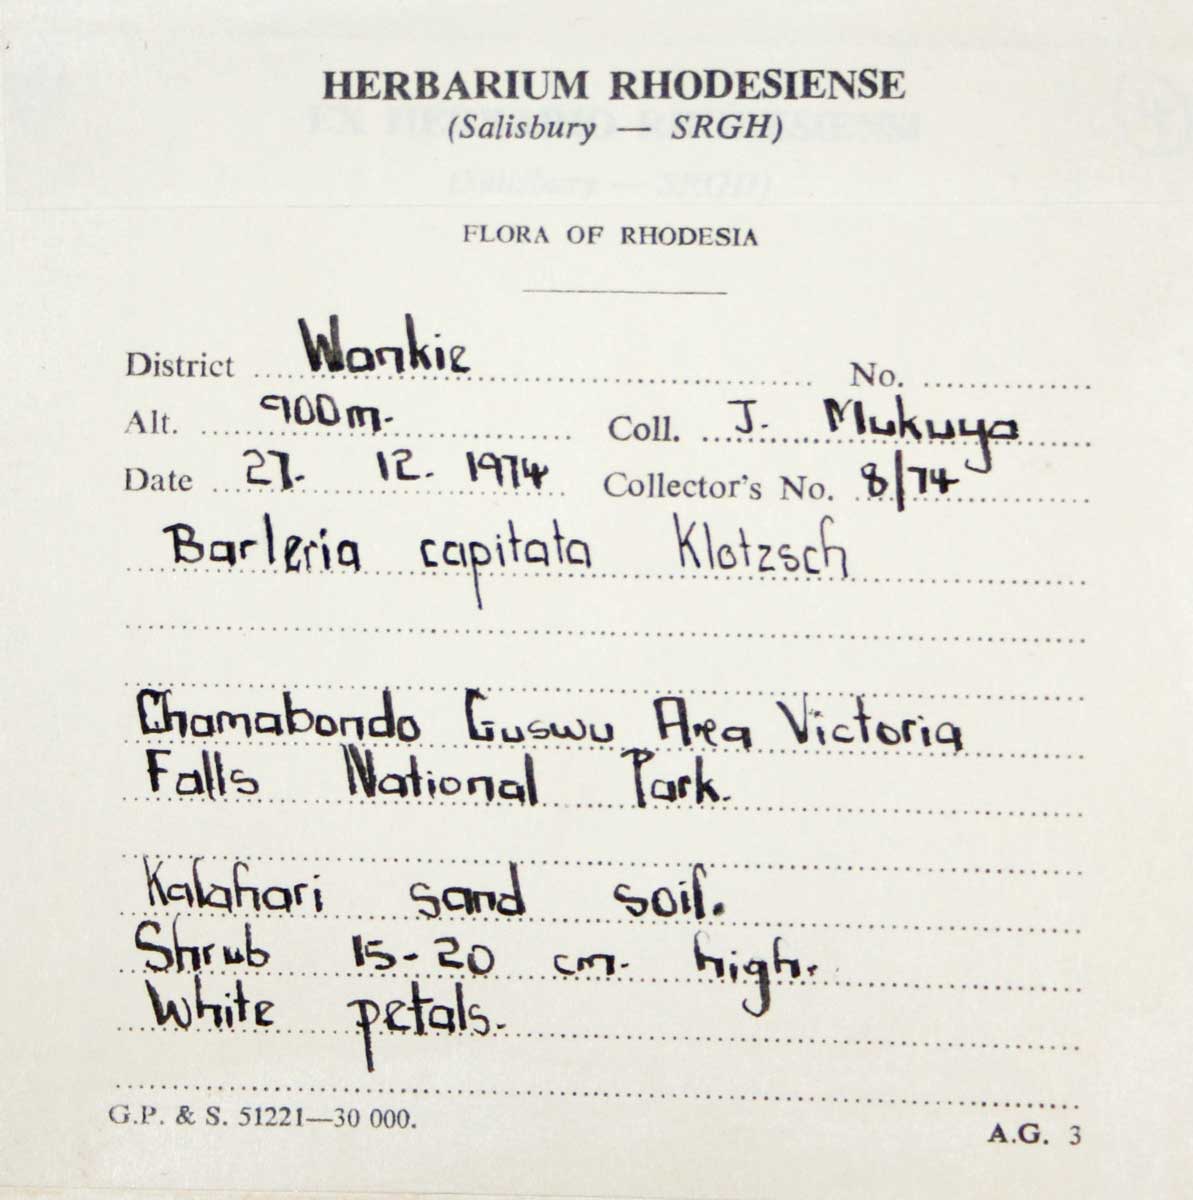 HERBARIUM RHODESIENSE
(Salisbury — SRGH)
FLORA OF RHODESIA
District Wankie No.
Alt. 900m. Coll. J. Mukuya
Date 27. 12. 1974 Collector's No. 8/74
Barleria capitata Klotzsch
Chamabondo Guswu Area Victoria
Falls National Park.
Kalahari sand soil.
Shrub 15-20 cm. high.
White petals.
G.P. & S. 51221—30 000.
A.G. 3